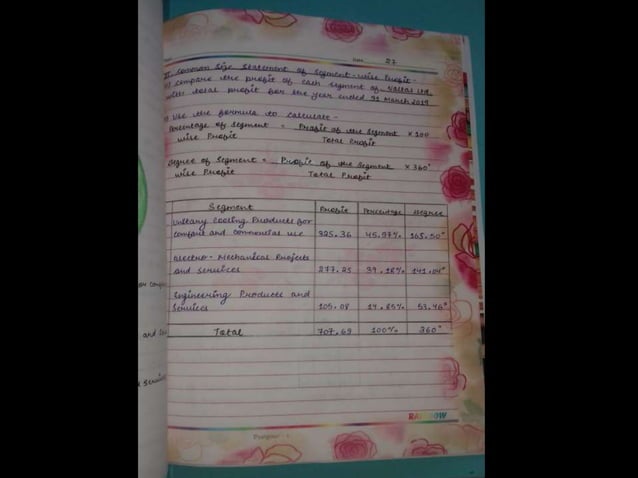 Date 27
II. Common Size Statement of Segment-wise Profit -
compare the profit of each segment of Voltas Ltd.
with total profit for the year ended 31 March 2019
Use the formula to calculate -
Percentage of Segment = Profit of the Segment × 100
wise Profit Total Profit
Degree of Segment = Profit of the Segment × 360°
wise Profit Total Profit
Segment Profit Percentage Degree
Unitary Cooling Products for
comfort and commercial use 325.36 45.97% 165.50°
Electro-Mechanical Projects
and services 277.25 39.18% 141.04°
Engineering Products and
Services 105.08 14.85% 53.46°
Total 707.69 100% 360°
RAINBOW